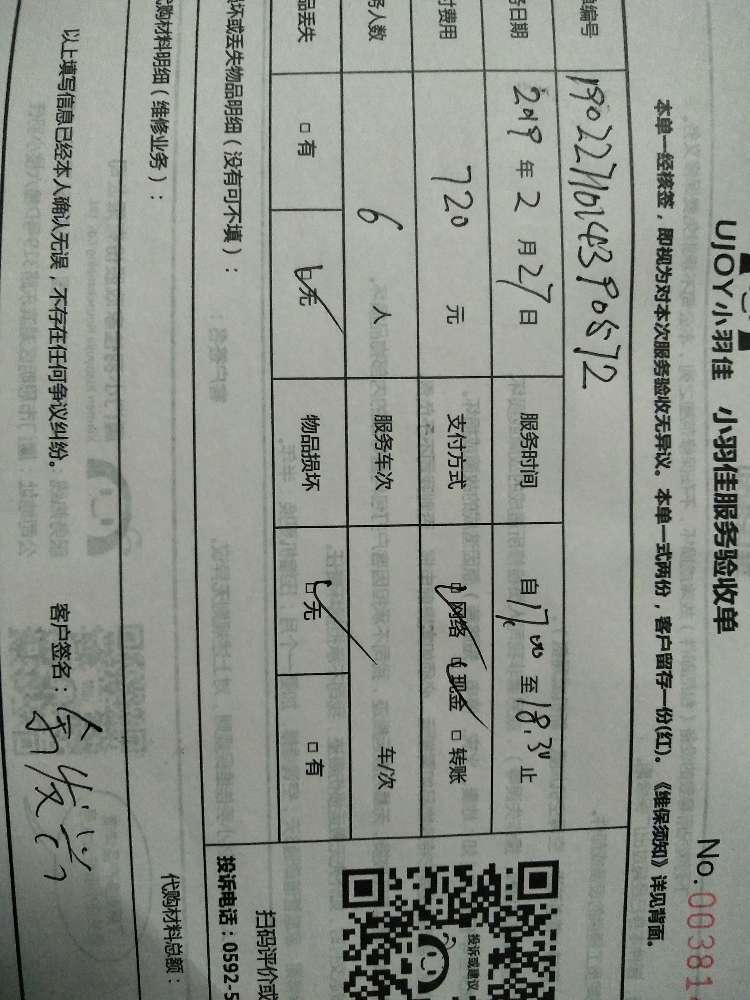 UJOY小羽佳 小羽佳服务验收单
No.00381
本单一经核签，即视为对本次服务验收无异议。本单一式两份，客户留存一份(红)。《维保须知》详见背面。
单编号 1902271014390572
务日期 2019年2月27日 服务时间 自17:00至18:30止
付费用 720元 支付方式 网络 现金 □转账
务人数 6人 服务车次 车/次
品丢失 □有 □无 物品损坏 □无 □有
损坏或丢失物品明细（没有可不填）：
代购材料明细（维修业务）：
代购材料总额：
以上填写信息已经本人确认无误，不存在任何争议纠纷。
客户签名：
投诉或建议
扫码评价或
投诉电话：0592-5